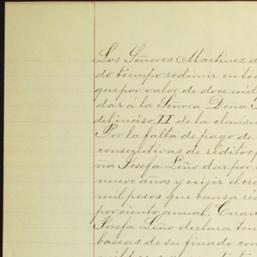 Los Señores Martinez d
do tiempo redimir en to
que por valor de doce mil
dar á la Señora Dona
del inciso II de la clausu
Por la falta de pago de
consecutivas de réditos p
ña Josefa Leño dar por
nueve años y exigir el cr
mil pesos que causa re
por ciento anual. Cuar
Josefa Leño declara ten
baceas de su finado con